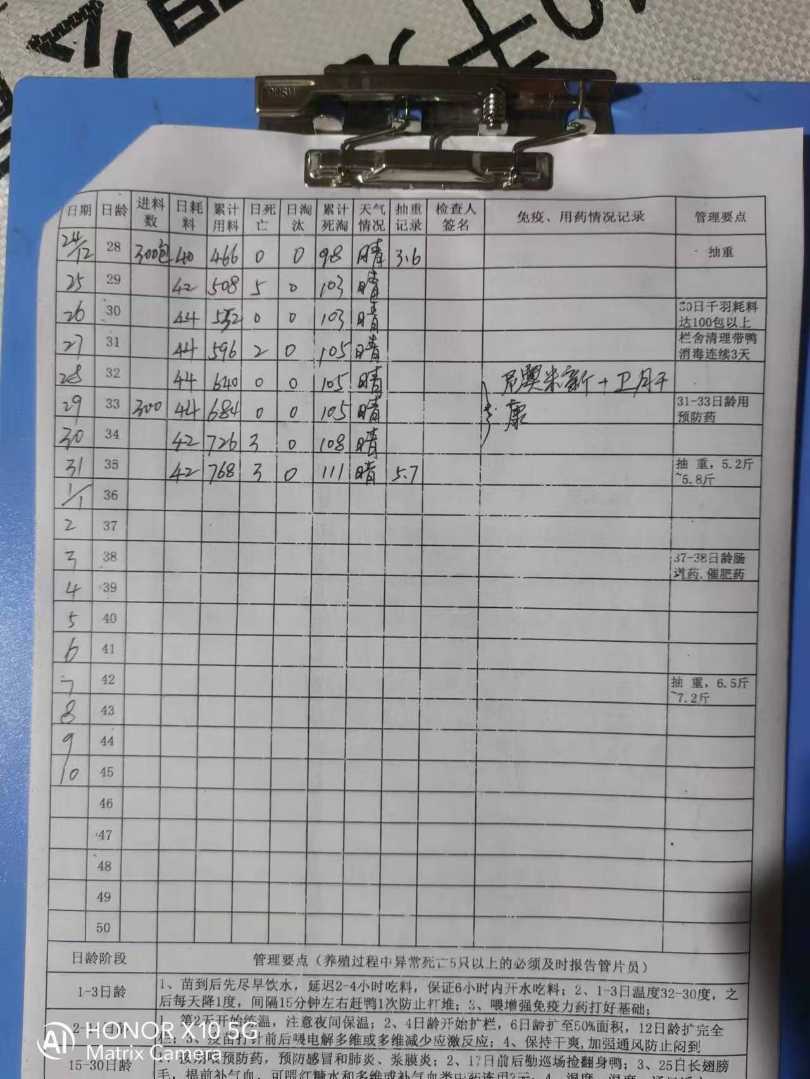 日期 日龄 进料数 日耗料 累计用料 日死亡 日淘汰 累计死淘 天气情况 抽重记录 检查人签名 免疫、用药情况记录 管理要点
24/12 28 300包 40 466 0 0 98 晴 3.6 抽重
25 29 42 508 5 0 103 晴
26 30 44 552 0 0 103 晴 30日千羽耗料达100包以上
27 31 44 596 2 0 105 晴 栏舍清理带鸭消毒连续3天
28 32 44 640 0 0 105 晴
29 33 300 44 684 0 0 105 晴 康 31-33日龄用预防药
30 34 42 726 3 0 108 晴
31 35 42 768 3 0 111 晴 5.7 抽重，5.2斤~5.8斤
1/1 36
2 37
3 38 37-38日龄肠道药.催肥药
4 39
5 40
6 41
7 42 抽重，6.5斤~7.2斤
8 43
9 44
10 45
46
47
48
49
50
日龄阶段 管理要点（养殖过程中异常死亡5只以上的必须及时报告管片员）
1-3日龄 1、苗到后先尽早饮水，延迟2-4小时吃料，保证6小时内开水吃料；2、1-3日温度32-30度，之
后每天降1度，间隔15分钟左右赶鸭1次防止打堆；3、喂增强免疫力药打好基础；
1、第2天开始练温，注意夜间保温；2、4日龄开始扩栏，6日龄扩至50%面积，12日龄扩完全
前后喂电解多维或多维减少应激反应；4、保持干爽,加强通风防止闷到
15-30日龄 预防药，预防感冒和肺炎、浆膜炎；2、17日前后勤巡场捡翻身鸭；3、25日长翅膀
HONOR X10 5G
Matrix Camera